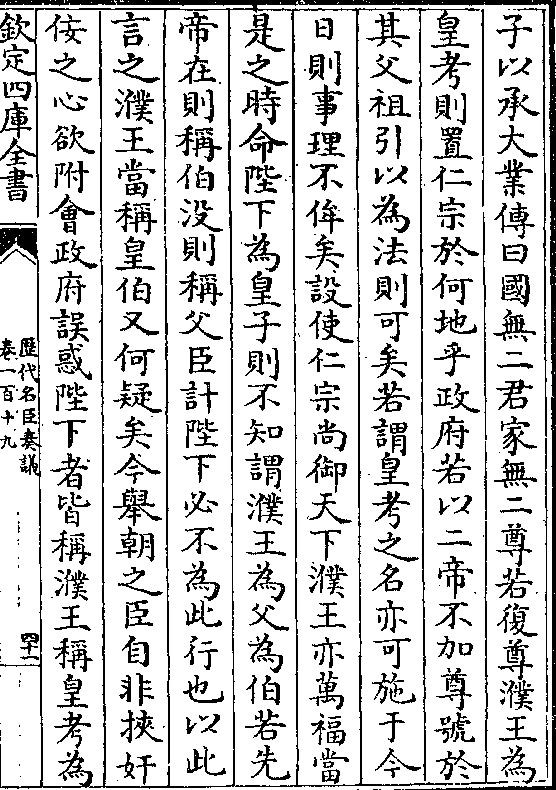 子以承大業傳曰國無二君家無二尊若復尊濮王為
皇考則置仁宗於何地乎政府若以二帝不加尊號於
其父祖引以為法則可矣若謂皇考之名亦可施于今
日則事理不侔矣設使仁宗尚御天下濮王亦萬福當
是之時命陛下為皇子則不知謂濮王為父為伯若先
帝在則稱伯没則稱父臣計陛下必不為此行也以此
言之濮王當稱皇伯又何疑矣今舉朝之臣自非挾奸
佞之心欲附會政府誤惑陛下者皆稱濮王稱皇考為
欽定四庫全書
歷代名臣奏議
卷一百十九
四十一